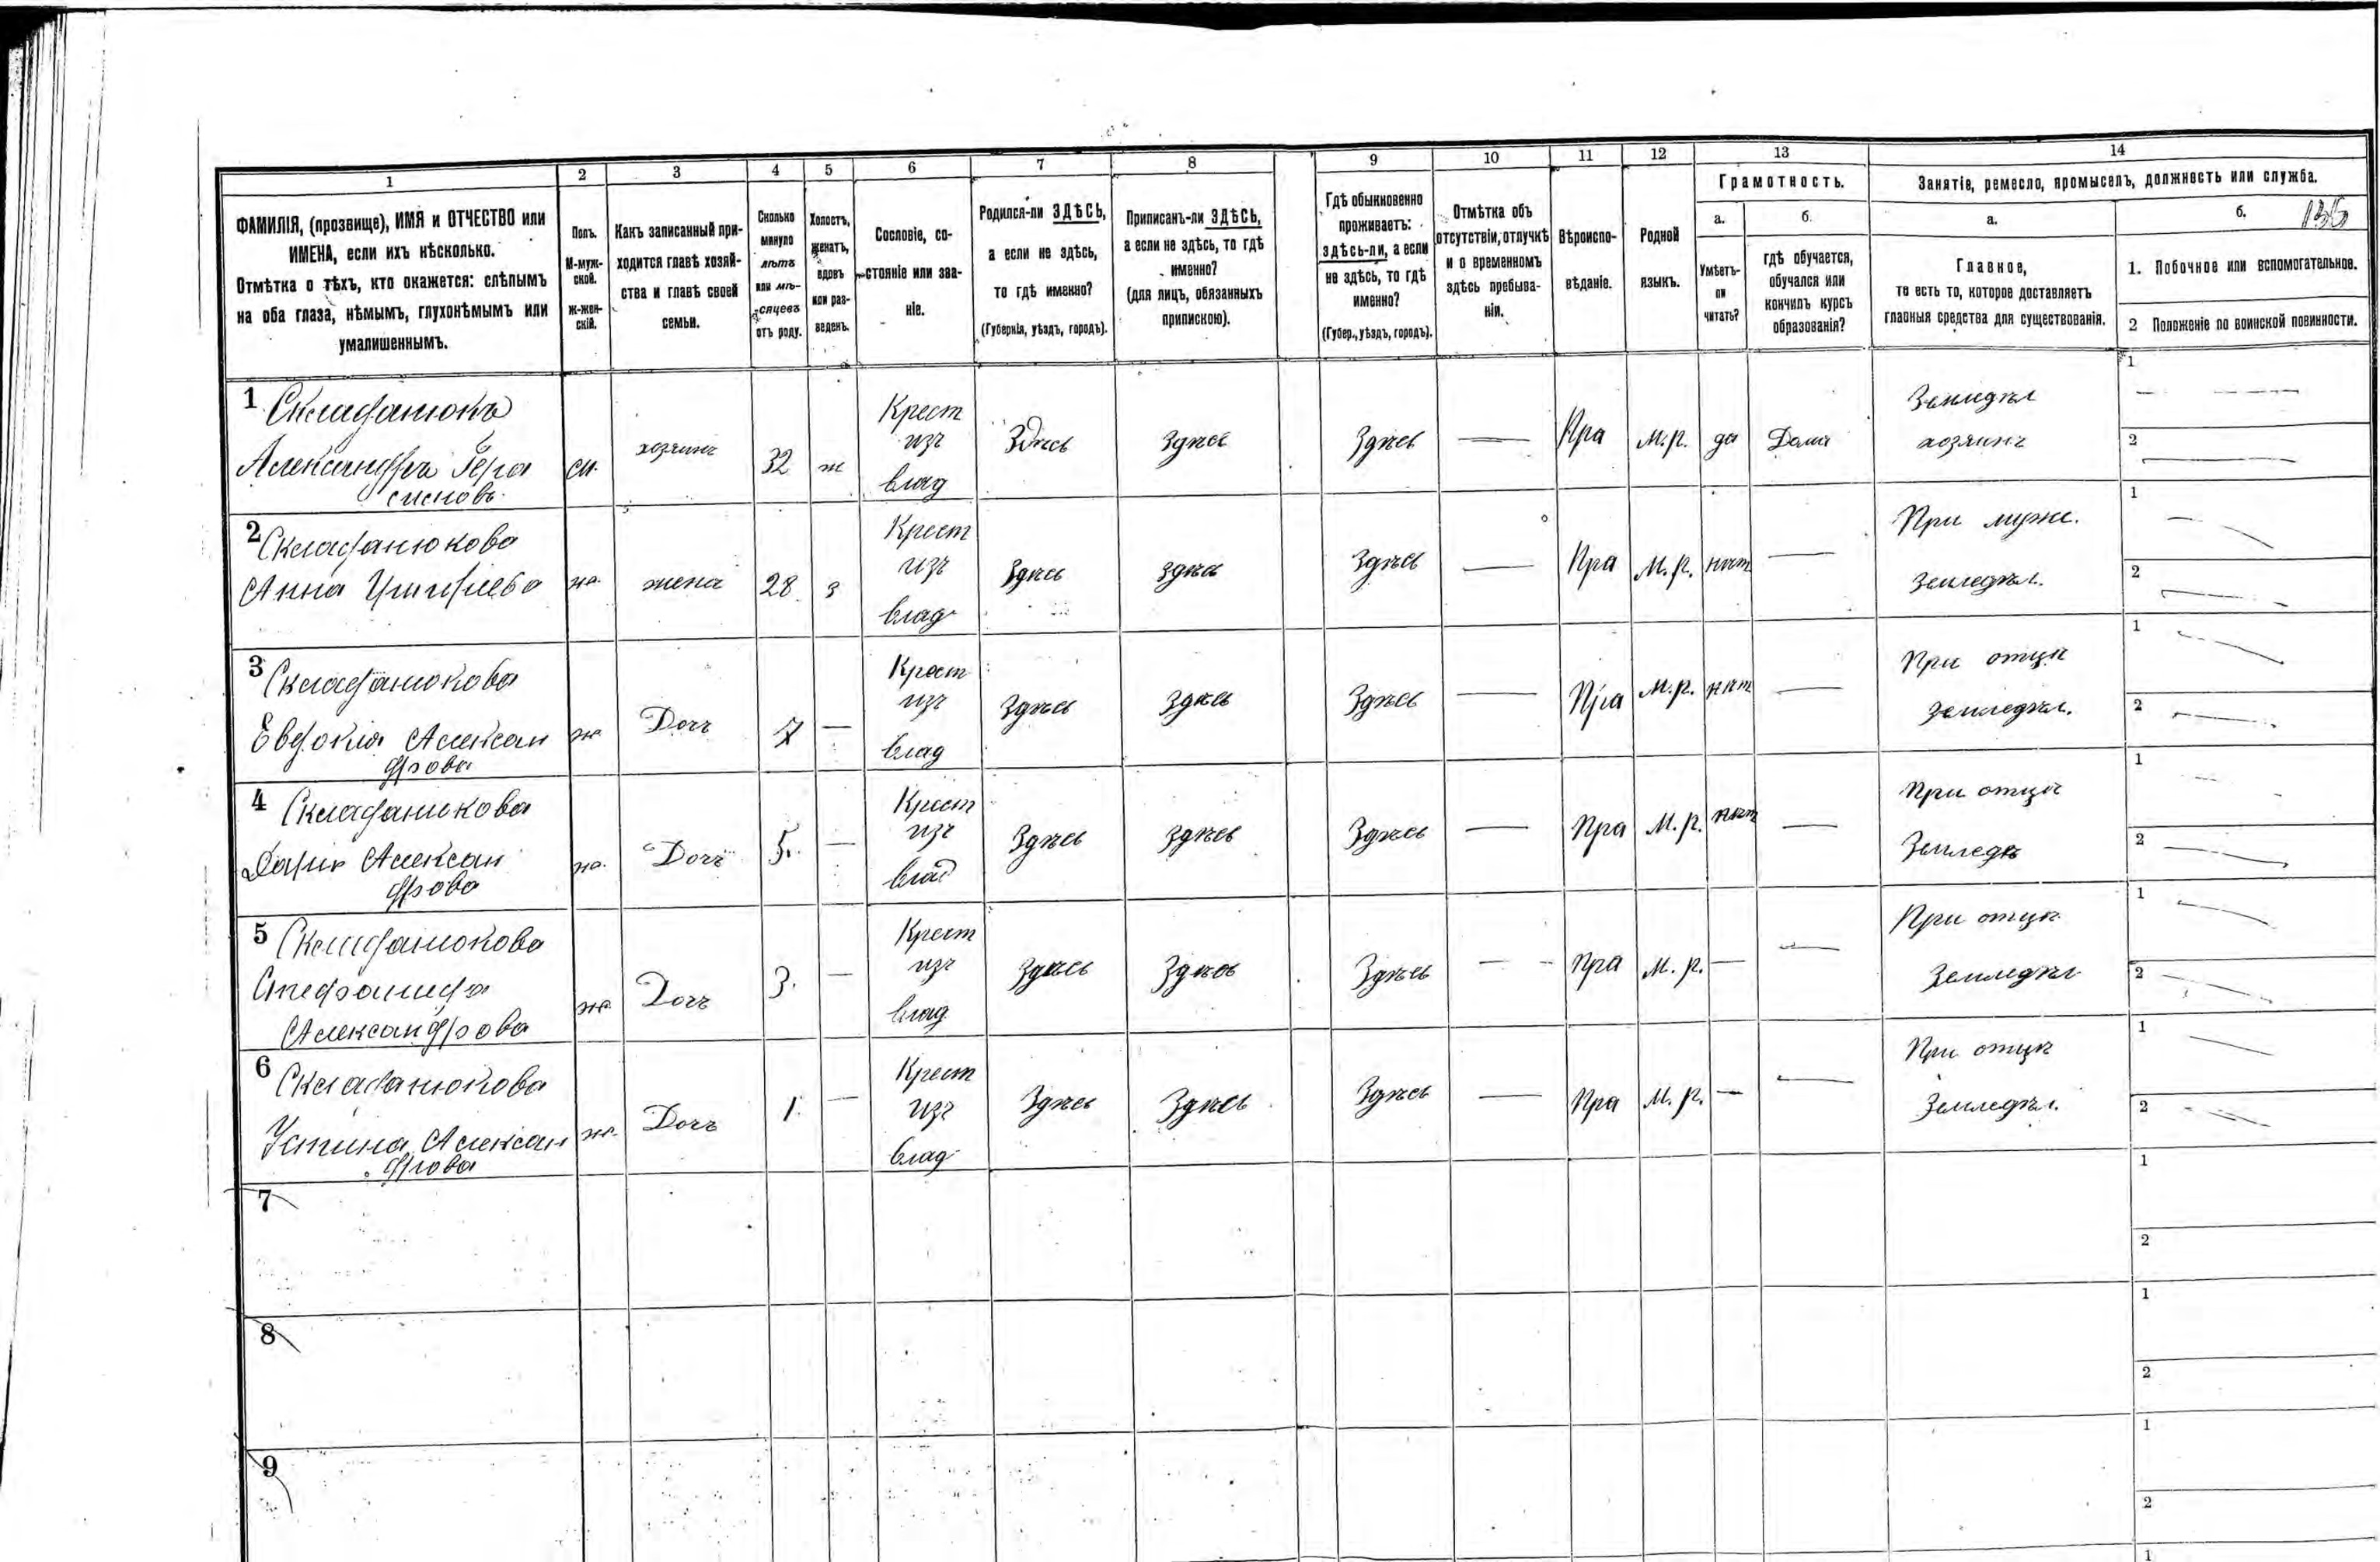 1 2 3 4 5 6 7 8 9 10 11 12 13 14
ФАМИЛІЯ, (прозвище), ИМЯ и ОТЧЕСТВО или
ИМЕНА, если ихъ нѣсколько.
Отмѣтка о тѣхъ, кто окажется: слѣпымъ
на оба глаза, нѣмымъ, глухонѣмымъ или
умалишеннымъ.
Полъ.
М-муж-
ской.
Ж-жен-
скій.
Какъ записанный при-
ходится главѣ хозяй-
ства и главѣ своей
семьи.
Сколько
минуло
лѣтъ
или мѣ-
сяцевъ
отъ роду.
Холостъ,
женатъ,
вдовъ
или раз-
веденъ.
Сословіе, со-
стояніе или зва-
ніе.
Родился-ли ЗДѢСЬ,
а если не здѣсь,
то гдѣ именно?
(Губернія, уѣздъ, городъ).
Приписанъ-ли ЗДѢСЬ,
а если не здѣсь, то гдѣ
именно?
(для лицъ, обязанныхъ
припискою).
Гдѣ обыкновенно
проживаетъ:
здѣсь-ли, а если
не здѣсь, то гдѣ
именно?
(Губер., уѣздъ, городъ).
Отмѣтка объ
отсутствіи, отлучкѣ
и о временномъ
здѣсь пребыва-
ніи.
Вѣроиспо-
вѣданіе.
Родной
языкъ.
Грамотность.
а.
Умѣетъ-
ли
читать?
б.
гдѣ обучается,
обучался или
кончилъ курсъ
образованія?
Занятіе, ремесло, промыселъ, должность или служба.
а.
Главное,
то есть то, которое доставляетъ
главныя средства для существованія.
б. 136
1. Побочное или вспомогательное.
2 Положеніе по воинской повинности.
1 Складанюкъ
Александръ Гера
симовъ
м.
хозяинъ
32
ж
Крест
изъ
влад
Здѣсь
Здѣсь
Здѣсь
—
Пра
М.р.
да
Дома
Земледѣл
хозяинъ
1 —
2 —
2 Складанюкова
Анна
ж.
жена
28
з
Крест
изъ
влад
Здѣсь
Здѣсь
Здѣсь
—
Пра
М.р.
нѣт
—
При муже.
Земледѣл.
1 —
2 —
3 Складанюкова
Евдокия Алексан
дрова
ж
Дочъ
7
—
Крест
изъ
влад
Здѣсь
Здѣсь
Здѣсь
—
Пра
М.р.
нѣт
—
При отцѣ
Земледѣл.
1 —
2 —
4 Складанюкова
Дарія Алексан
дрова
ж.
Дочъ
5.
—
Крест
изъ
влад
Здѣсь
Здѣсь
Здѣсь
—
Пра
М.р.
нѣт
—
При отцѣ
Земледѣ
1 —
2 —
5 Складанюкова
Степанида
Александрова
ж.
Дочъ
3.
—
Крест
изъ
влад
Здѣсь
Здѣсь
Здѣсь
—
Пра
М.р.
—
—
При отцѣ
Земледѣл
1 —
2 —
6 Складанюкова
Устина Алексан
дрова
ж.
Дочъ
1.
—
Крест
изъ
влад
Здѣсь
Здѣсь
Здѣсь
—
Пра
М.р.
—
—
При отцѣ
Земледѣл.
1 —
2 —
7
1
2
8
1
2
9
1
2
1